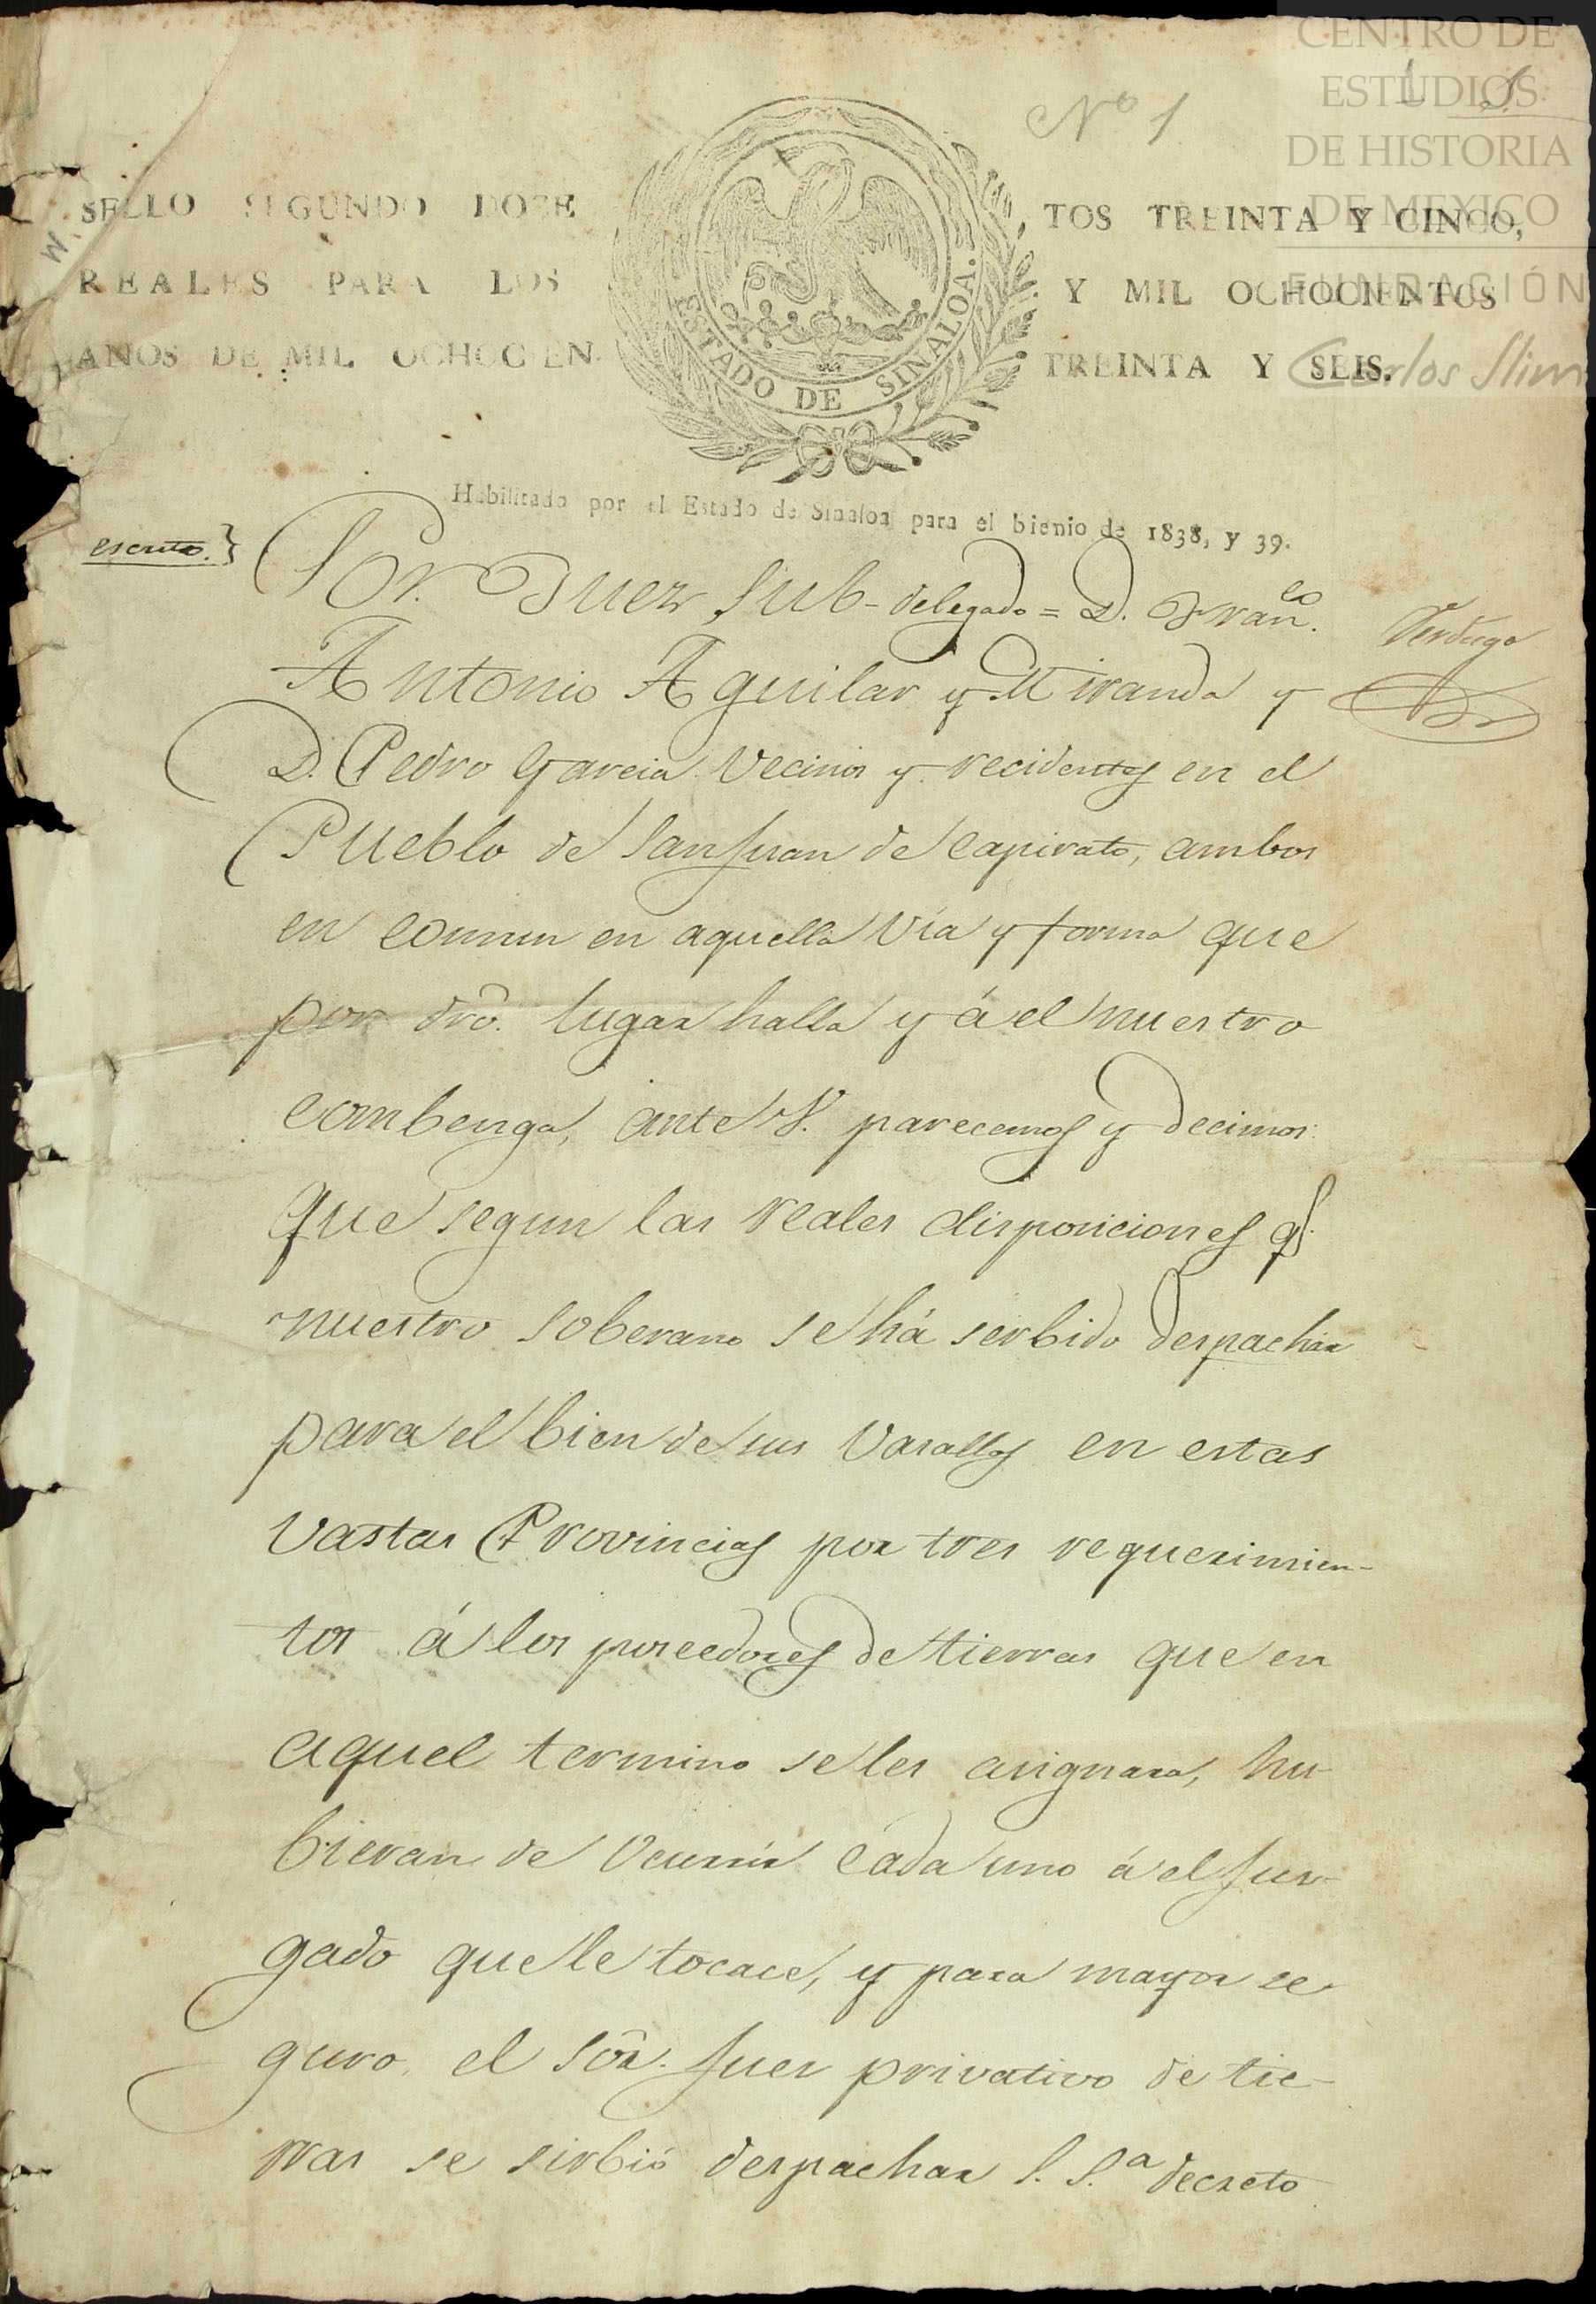 CENTRO DE
ESTUDIOS
DE HISTORIA
DE MEXICO
FUNDACIÓN
Carlos Slim
Nº 1
SELLO SEGUNDO DOZE
REALES PARA LOS
AÑOS DE MIL OCHOCIEN
ESTADO DE SINALOA.
TOS TREINTA Y CINCO,
Y MIL OCHOCIENTOS
TREINTA Y SEIS.
Habilitado por el Estado de Sinaloa para el bienio de 1838, y 39.
escrito.}
Sor. Juez Sub-delegado = D. Franco.
Verdugo
Antonio Aguilar y Miranda y
D. Pedro Garcia Vecinos y recidentes en el
Pueblo de San Juan de Capirato, ambos
en comun en aquella Via y forma que
por dro. lugar halla y á el nuestro
combenga, ante V. parecemos y decimos:
que segun las reales disposiciones q.
nuestro soberano se há serbido despachar
para el bien de sus Vasallos en estas
Vastas Provincias por tres requerimien-
tos á los poseedores de tierras que en
aquel termino se les asignara, hu-
bieran de Ocurrir cada uno á el Juz-
gado que le tocace, y para mayor se-
guro, el Sor. Juez privativo de tie-
rras se sirbió despachar S. S.a decreto